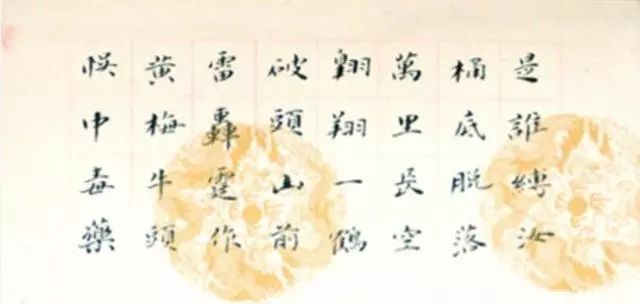 是誰縛汝
桶底脱落
萬里長空
翱翔一鶴
破頭山前
雷轟霆作
黄梅牛頭
悞中毒藥